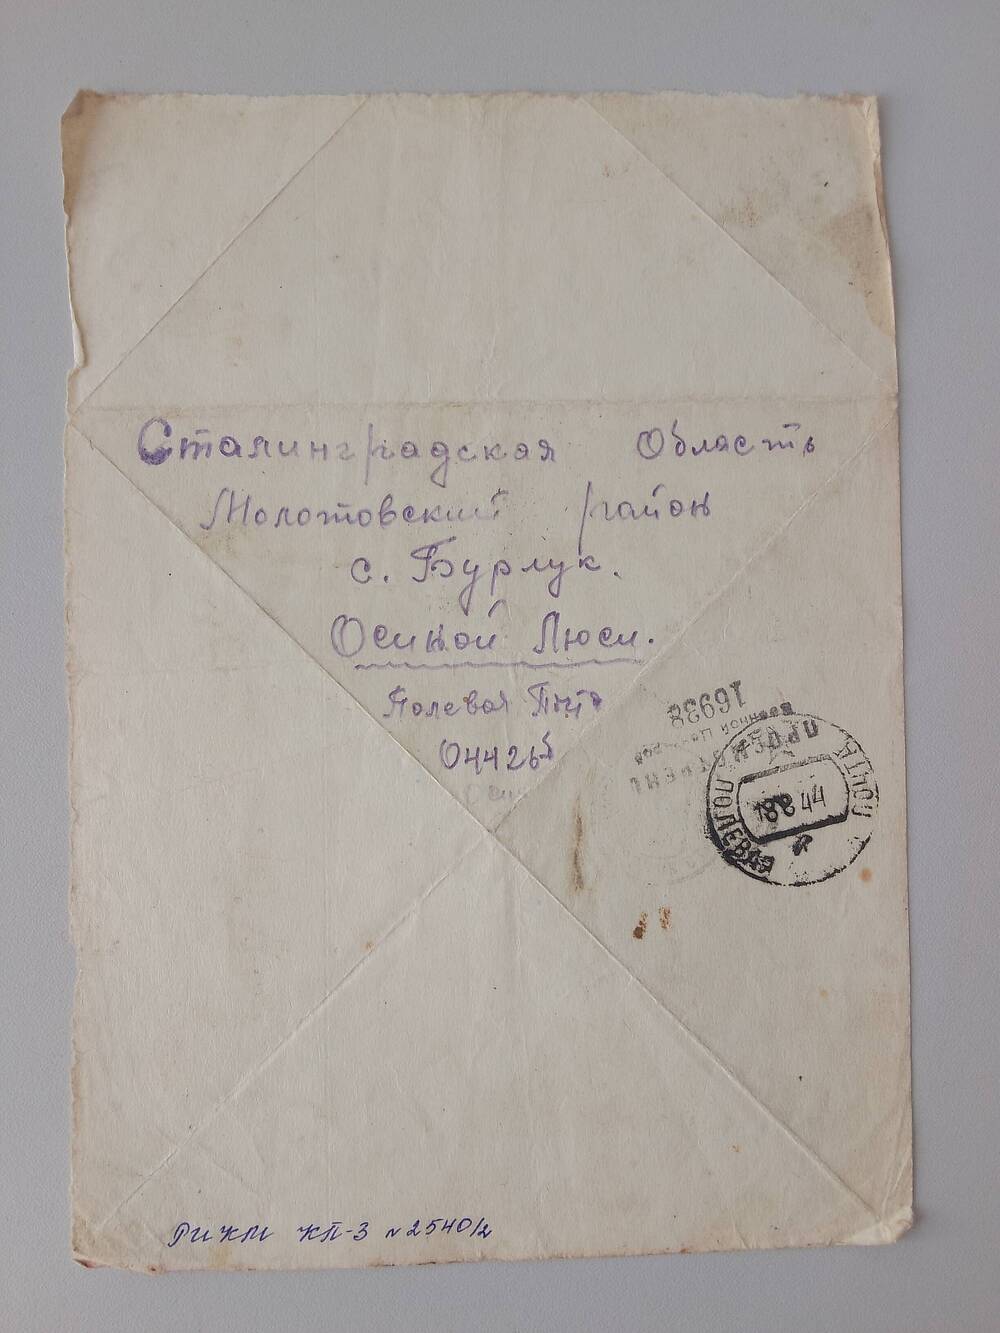 Сталинградская Область
Молотовский район
с. Бурлук.
Осиной Люси.
Полевая
04426
16938
Военной Цензурой
ПРОСМОТРЕНО
ПОЛЕВАЯ ПОЧТА
18 8 44
РИКМ КП-3 №2540/2